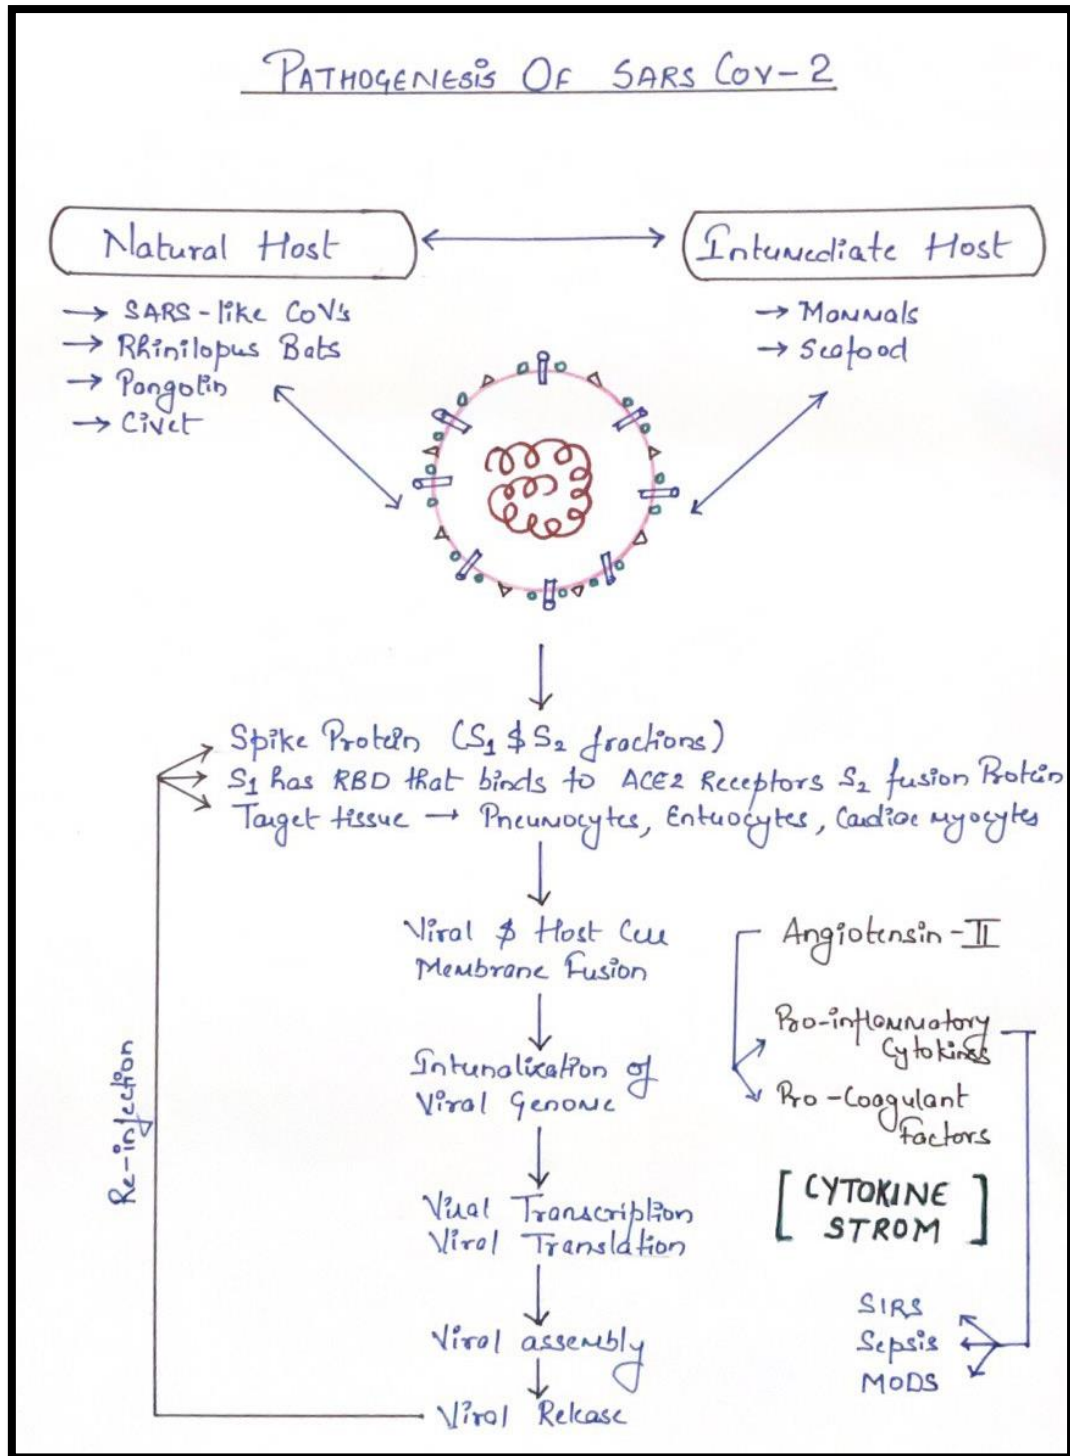 PATHOGENESIS OF SARS CoV-2
Natural Host
Intermediate Host
→ SARS-like CoV's
→ Rhinilopus Bats
→ Pangolin
→ Civet
→ Mammals
→ Seafood
Spike Protein (S1 & S2 fractions)
S1 has RBD that binds to ACE2 Receptors S2 fusion Protein
Target tissue → Pneumocytes, Enterocytes, Cardiac myocytes
Viral & Host Cell
Membrane Fusion
Internalization of
Viral Genome
Viral Transcription
Viral Translation
Viral assembly
Viral Release
Re-infection
Angiotensin-II
Pro-inflammatory
Cytokines
Pro-Coagulant
Factors
[CYTOKINE
STROM]
SIRS
Sepsis
MODS